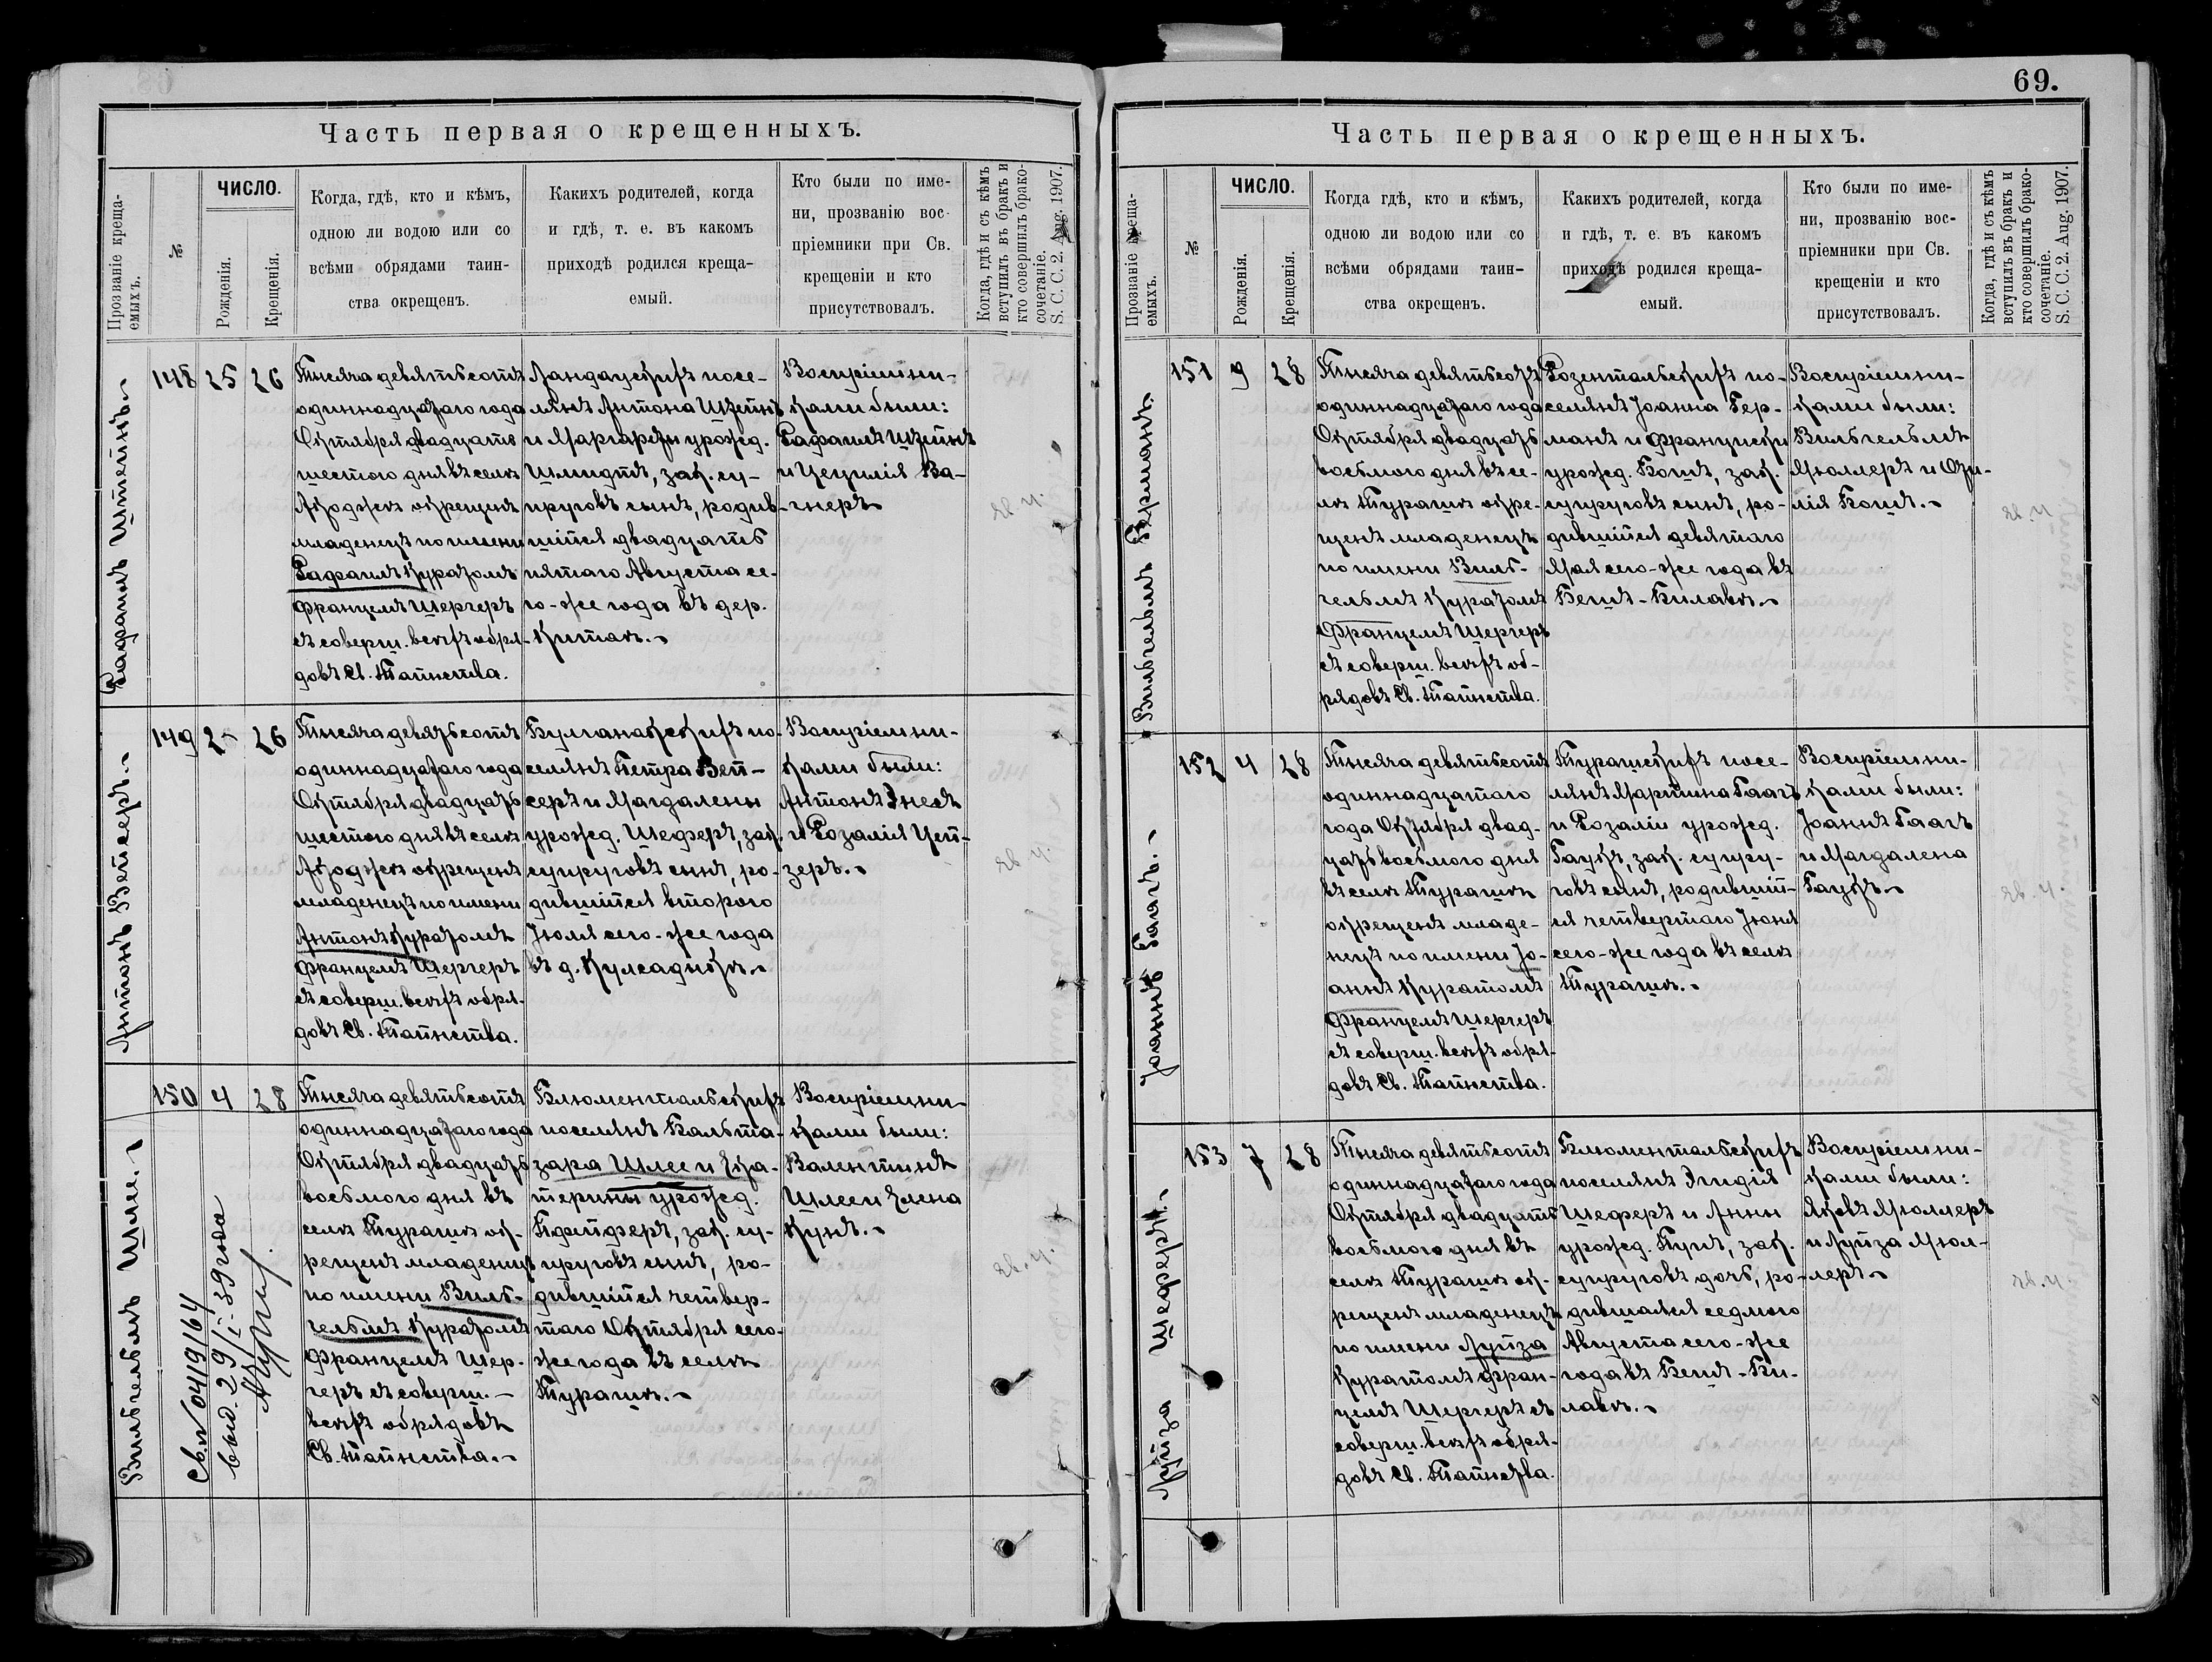 Часть первая о крещенныхъ.
Прозваніе креща-
емыхъ.
№
ЧИСЛО.
Рожденія.
Крещенія.
Когда, гдѣ, кто и кѣмъ,
одною ли водою или со
всѣми обрядами таин-
ства окрещенъ.
Какихъ родителей, когда
и гдѣ, т. е. въ какомъ
приходѣ родился креща-
емый.
Кто были по име-
ни, прозванію вос-
пріемники при Св.
крещеніи и кто
присутствовалъ.
Когда, гдѣ и съ кѣмъ
вступилъ въ бракъ и
кто совершилъ брако-
сочетаніе.
S. C. C. 2. Aug. 1907.
Рафаилъ Штейнъ.
148 25 26
Тысяча девятьсотъ
одиннадцатаго года
Октября двадцать
шестого дня въ селѣ
окрещенъ
младенецъ по имени
Рафаилъ Куратомъ
Францемъ Шергеръ
съ соверш. всѣхъ обря-
довъ Св. Таинства.
Ландаускихъ посе-
лянъ Антона Штейнъ
и Маргареты урожд.
Шмидтъ, зак. су-
пруговъ сынъ, родив-
шійся двадцать
пятаго Августа се-
го-же года въ дер.
Китаѣ.
Воспріемни-
ками были:
Рафаилъ Штейнъ
и Цецилія Ва-
гнеръ
Антонъ Вейсеръ.
149 2 26
Тысяча девятьсотъ
одиннадцатаго года
Октября двадцать
шестого дня въ селѣ
окрещенъ
младенецъ по имени
Антонъ Куратомъ
Францемъ Шергеръ
съ соверш. всѣхъ обря-
довъ Св. Таинства.
Булганакскихъ по-
селянъ Петра Вей-
серъ и Магдалены
урожд. Шеферъ, зак.
супруговъ сынъ, ро-
дившійся второго
Іюля сего-же года
въ д.
Воспріемни-
ками были:
Антонъ Знесъ
и Розалія Цей-
зеръ.
Вильгельмъ Шлее.
Св. № 0419164
выд. 29/I-39 года
150 4 28
Тысяча девятьсотъ
одиннадцатаго года
Октября двадцать
восьмого дня въ
селѣ Турашѣ ок-
рещенъ младенецъ
по имени Виль-
гельмъ Куратомъ
Францемъ Шер-
геръ съ соверш.
всѣхъ обрядовъ
Св. Таинства.
Блюментальскихъ
поселянъ Бальта-
зара Шлее и Ека-
терины урожд.
Пфейферъ, зак. су-
пруговъ сынъ, ро-
дившійся четвер-
таго Октября сего-
же года въ селѣ
Турашѣ.
Воспріемни-
ками были:
Валентинъ
Шлее и Елена
Кунъ.
69.
Часть первая о крещенныхъ.
Прозваніе креща-
емыхъ.
№
ЧИСЛО.
Рожденія.
Крещенія.
Когда гдѣ, кто и кѣмъ,
одною ли водою или со
всѣми обрядами таин-
ства окрещенъ.
Какихъ родителей, когда
и гдѣ, т. е. въ какомъ
приходѣ родился креща-
емый.
Кто были по име-
ни, прозванію вос-
пріемники при Св.
крещеніи и кто
присутствовалъ.
Когда, гдѣ и съ кѣмъ
вступилъ въ бракъ и
кто совершилъ брако-
сочетаніе.
S. C. C. 2. Aug. 1907.
Вильгельмъ Германъ.
151 9 28
Тысяча девятьсотъ
одиннадцатаго года
Октября двадцать
восьмого дня въ се-
лѣ Турашѣ окре-
щенъ младенецъ
по имени Виль-
гельмъ Куратомъ
Францемъ Шергеръ
съ соверш. всѣхъ об-
рядовъ Св. Таинства.
Розентальскихъ по-
селянъ Іоанна Гер-
манъ и Франциски
урожд. Кошъ, зак.
супруговъ сынъ, ро-
дившійся девятаго
Мая сего-же года въ
Бешъ-Билавѣ.
Воспріемни-
ками были:
Вильгельмъ
Мюллеръ и Оти-
лія Кошъ.
Іоаннъ Гаагъ.
152 4 28
Тысяча девятьсотъ
одиннадцатого
года Октября двад-
цать восьмого дня
въ селѣ Турашѣ
окрещенъ младе-
нецъ по имени Іо-
аннъ Куратомъ
Францемъ Шергеръ
съ соверш. всѣхъ обря-
довъ Св. Таинства.
Турашскихъ посе-
лянъ Мартина Гаагъ
и Розаліи урожд.
Гаукъ, зак. супру-
говъ сынъ, родивший-
ся четвертаго Іюня
сего-же года въ селѣ
Турашѣ.
Воспріемни-
ками были:
Іоаннъ Гаагъ
и Магдалена
Гаукъ
Луиза Шеферъ.
153 7 28
Тысяча девятьсотъ
одиннадцатаго года
Октября двадцать
восьмого дня въ
селѣ Турашѣ ок-
рещенъ младенецъ
по имени Луиза
Куратомъ Фран-
цемъ Шергеръ съ
соверш. всѣхъ обря-
довъ Св. Таинства.
Блюментальскихъ
поселянъ Эгидія
Шеферъ и Анны
урожд. Кунъ, зак.
супруговъ дочь, ро-
дившаяся седмого
Августа сего-же
года въ Бешъ-Би-
лавѣ.
Воспріемни-
ками были:
Яковъ Мюллеръ
и Луиза Мюл-
леръ